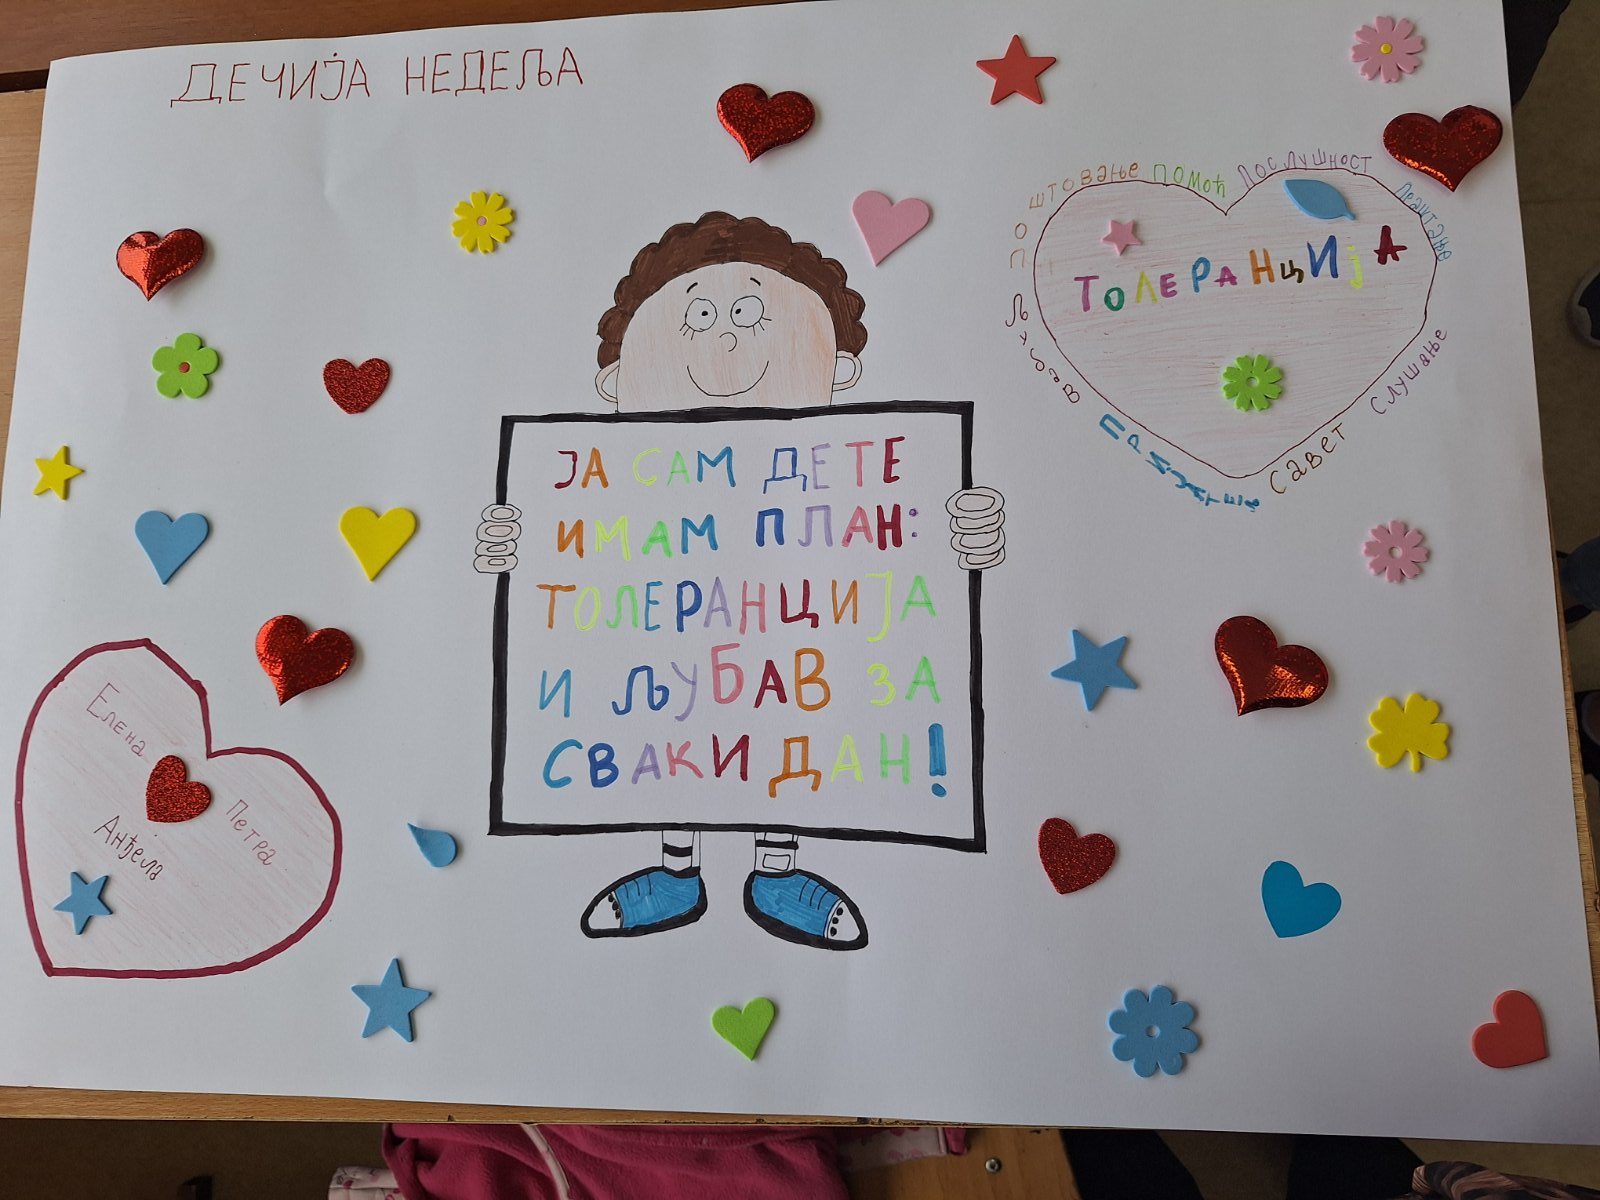 ДЕЧИЈА НЕДЕЉА
ЈА САМ ДЕТЕ
ИМАМ ПЛАН:
ТОЛЕРАНЦИЈА
И ЉУБАВ ЗА
СВАКИ ДАН!
ТОЛЕРАНЦИЈА
поштовање помоћ послушност праштање
слушање
савет
љубав
Елена
Петра
Анђела